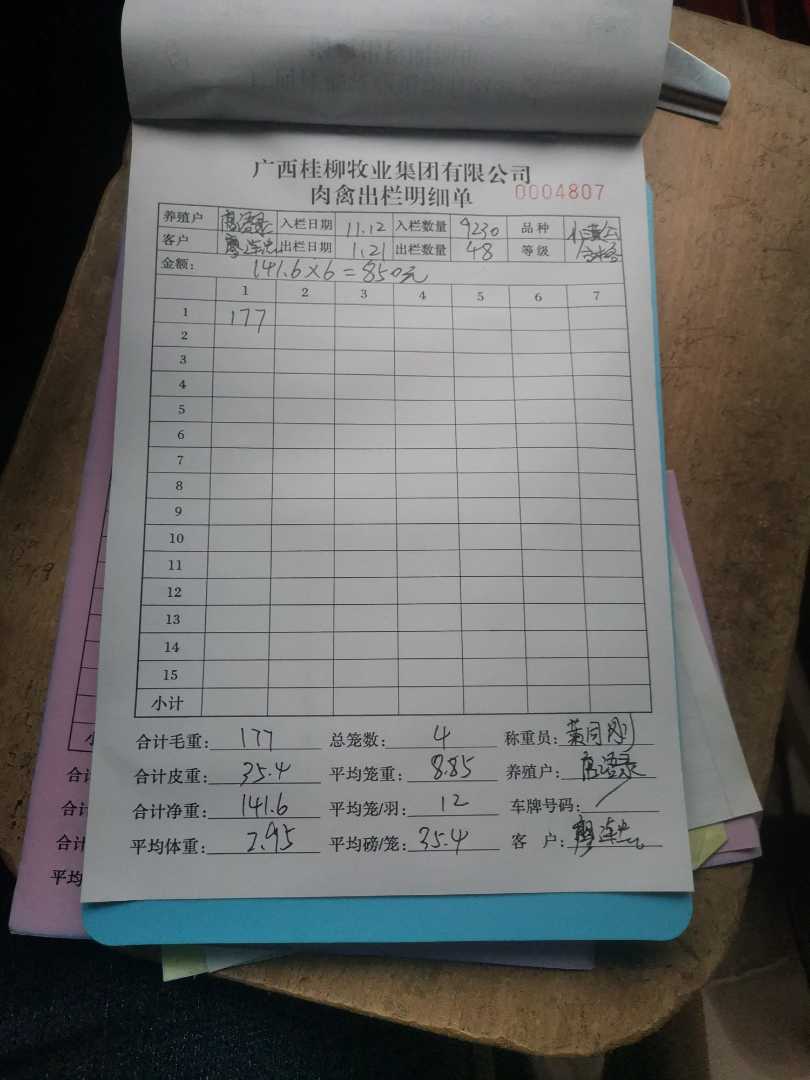 广西桂柳牧业集团有限公司
肉禽出栏明细单 0004807
养殖户 入栏日期 11.12 入栏数量 9230 品种
客户 廖连忠 出栏日期 1.21 出栏数量 48 等级 合格
金额: 141.6×6=850元
1 2 3 4 5 6 7
1 177
2
3
4
5
6
7
8
9
10
11
12
13
14
15
小计
合计毛重: 177 总笼数: 4 称重员: 黄同刚
合计皮重: 35.4 平均笼重: 8.85 养殖户:
合计净重: 141.6 平均笼/羽: 12 车牌号码:
平均体重: 2.95 平均磅/笼: 35.4 客 户: 廖连忠
小
合计
合计
合计
平均